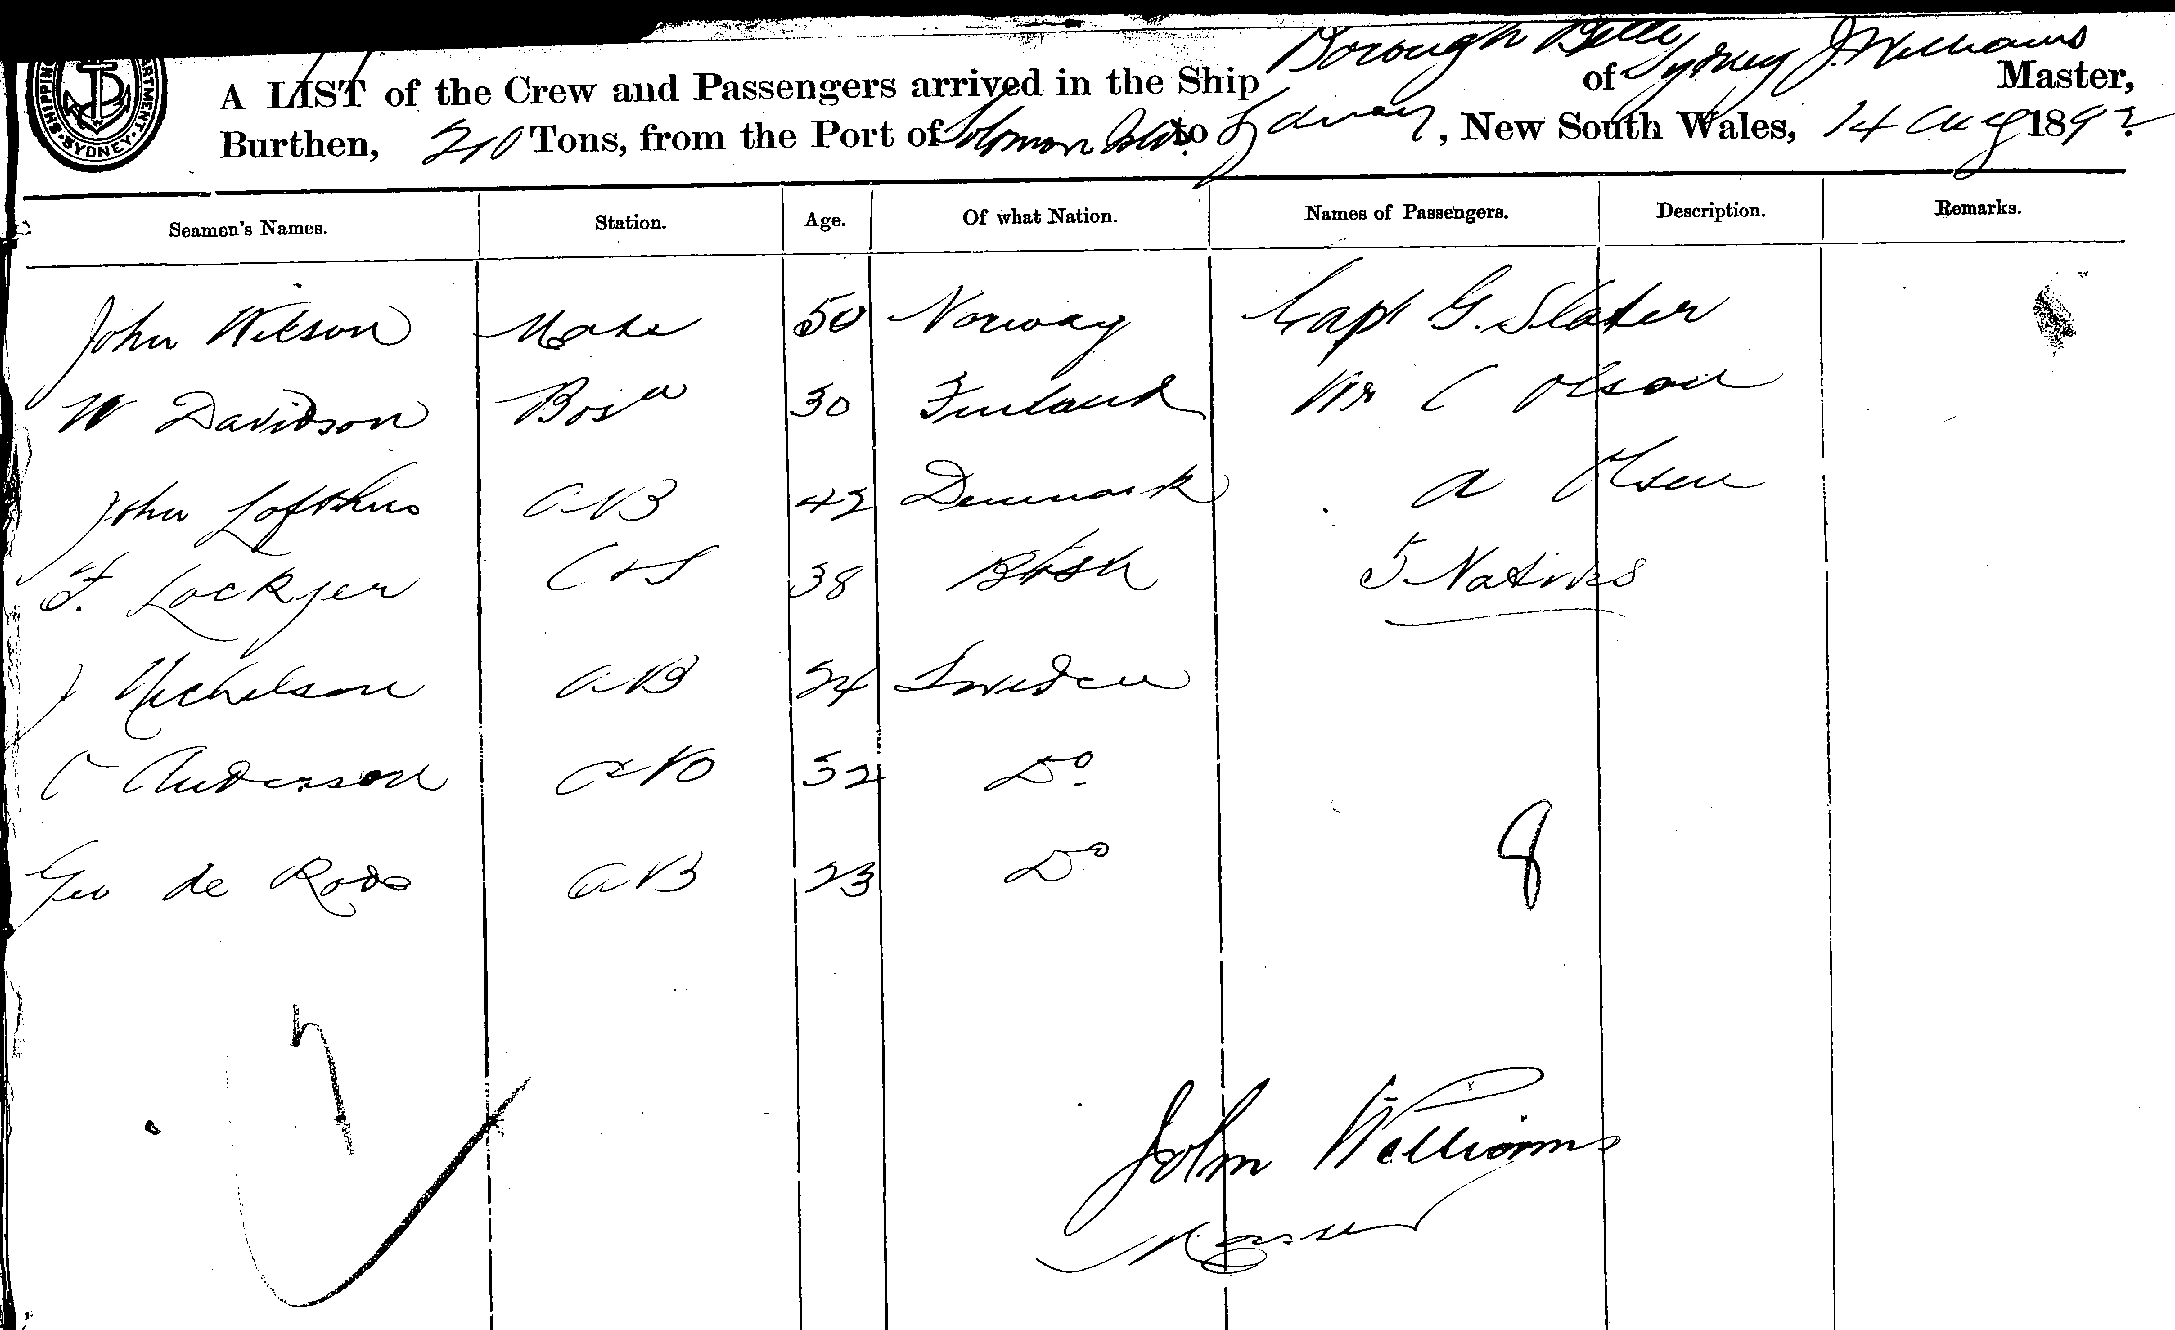 SHIPPING DEPARTMENT SYDNEY
A LIST of the Crew and Passengers arrived in the Ship Borough Belle of Sydney J. Williams Master,
Burthen, 210 Tons, from the Port of Solomon Islds to Sydney, New South Wales, 14 Aug 1892
Seamen's Names. Station. Age. Of what Nation. Names of Passengers. Description. Remarks.
John Wilson Mate 50 Norway Capt G. Slater
W Davidson Bosn 30 Finland Mr C Olson
John Lofthus AB 42 Denmark A Olsen
F. Lockyer C & S 38 Btish 5 Natives
J Nichelson AB 24 Sweden
C Anderson AB 32 Do
Geo de Roos AB 23 Do
8
7
John Williams
Master